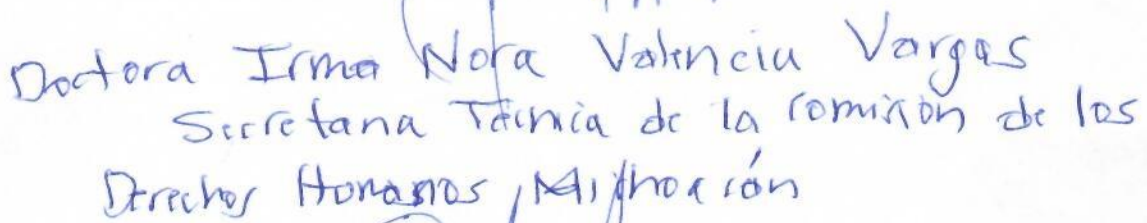 Doctora Irma Nora Valencia Vargas
Secretaria Técnica de la comisión de los
Derechos Humanos, Michoacán